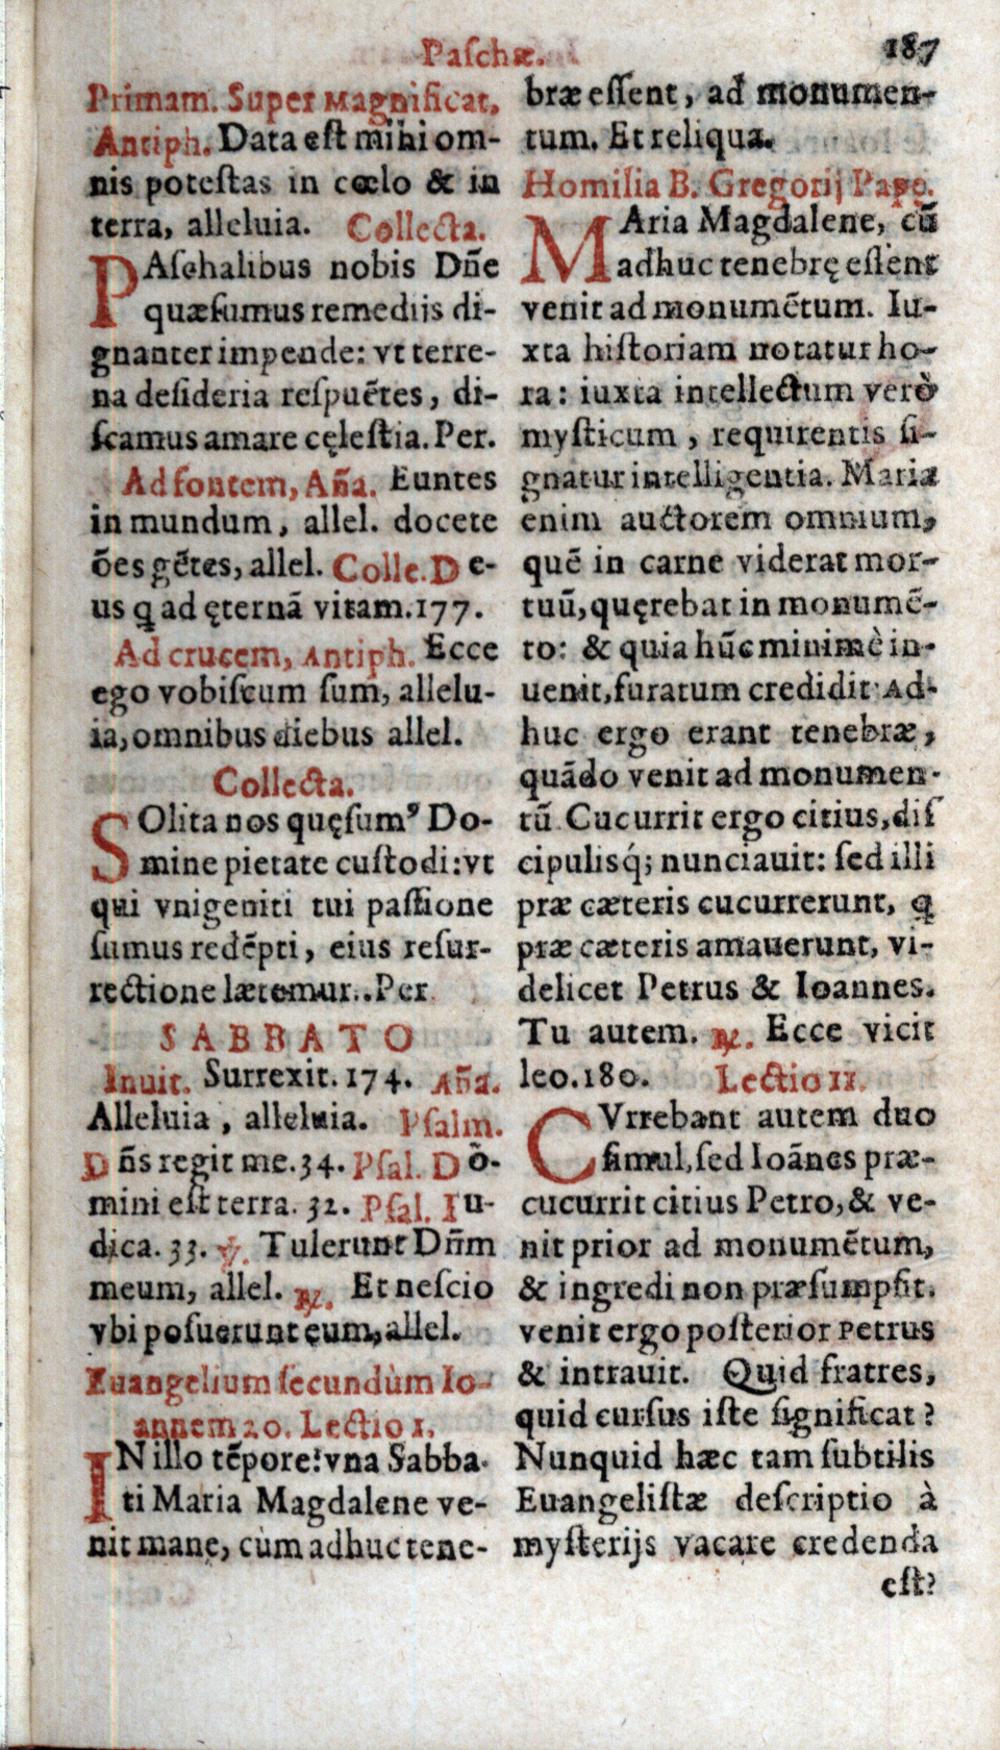 Paſchæ. 187
Primam. Super Magnificat,
Antiph. Data eſt mihi om-
nis poteſtas in cœlo & in
terra, alleluia. Collecta.
PAſchalibus nobis Dñe
quæſumus remediis di-
gnanter impende: vt terre-
na deſideria reſpuẽtes, di-
ſcamus amare cęleſtia. Per.
Ad fontem, Aña. Euntes
in mundum, allel. docete
ões gẽtes, allel. Colle. De-
us q̨ ad ęternã vitam. 177.
Ad crucem, Antiph. Ecce
ego vobiſcum ſum, allelu-
ia, omnibus diebus allel.
Collecta.
SOlita nos quęſumꝰ Do-
mine pietate cuſtodi: vt
qui vnigeniti tui paſſione
ſumus redẽpti, eius reſur-
rectione lætemur.. Per
SABBATO
Inuit. Surrexit. 174. Aña.
Alleluia, alleluia. Pſalm.
Dñs regit me. 34. Pſal. Dõ-
mini eſt terra. 32. Pſal. Iu-
dica. 33. ℣. Tulerunt Dñm
meum, allel. ℟. Et neſcio
vbi poſuerunt eum, allel.
Euangelium ſecundùm Io-
annem 20. Lectio 1.
IN illo tẽpore: vna Sabba-
ti Maria Magdalene ve-
nit mane, cùm adhuc tene-
bræ eſſent, ad monumen-
tum. Et reliqua.
Homilia B. Gregorij Papę.
MAria Magdalene, cũ
adhuc tenebrę eſſent
venit ad monumẽtum. Iu-
xta hiſtoriam notatur ho-
ra: iuxta intellectum verò
myſticum, requirentis ſi-
gnatur intelligentia. Maria
enim auctorem omnium,
quẽ in carne viderat mor-
tuũ, quęrebat in monumẽ-
to: & quia hũc minimè in-
uenit, furatum credidit Ad-
huc ergo erant tenebræ,
quãdo venit ad monumen-
tũ Cucurrit ergo citius, diſ
cipulisq́; nunciauit: ſed illi
præ cæteris cucurrerunt, q̨
præ cæteris amauerunt, vi-
delicet Petrus & Ioannes.
Tu autem. ℟. Ecce vicit
leo. 180. Lectio 11.
CVrrebant autem duo
ſimul, ſed Ioãnes præ-
cucurrit citius Petro, & ve-
nit prior ad monumẽtum,
& ingredi non præſumpſit.
venit ergo poſterior Petrus
& intrauit. Quid fratres,
quid curſus iſte ſignificat?
Nunquid hæc tam ſubtilis
Euangeliſtæ deſcriptio à
myſterijs vacare credenda
eſt?